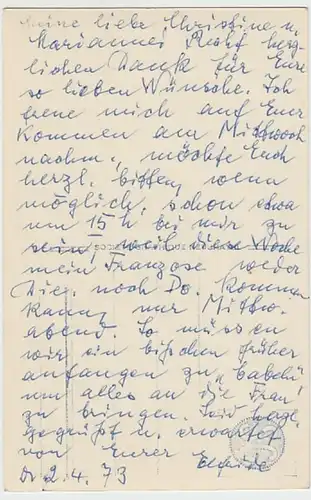 Meine liebe Christine u.
Marianne, Recht herz-
lichen Dank für Eure
so lieben Wünsche. Ich
freue mich auf Euer
Kommen am Mittwoch
nachm., möchte Euch
herzl. bitten, wenn
möglich, schon etwa
um 15 h bei mir zu
sein, weil diese Woche
mein Franzose weder
Die., noch Do kommen
kann, nur Mittw.
abend. So müssen
wir ein bißchen früher
anfangen zu „babeln“
um alles an die Frau
zu bringen. Seid herzl.
gegrüßt u. erwartet
von Eurer
d. 2. 4. 73